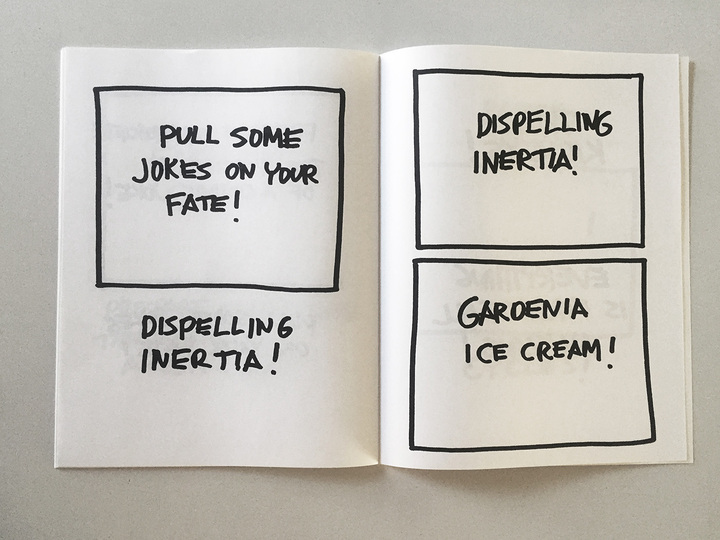 PULL SOME
JOKES ON YOUR
FATE!
DISPELLING
INERTIA!
DISPELLING
INERTIA!
GARDENIA
ICE CREAM!